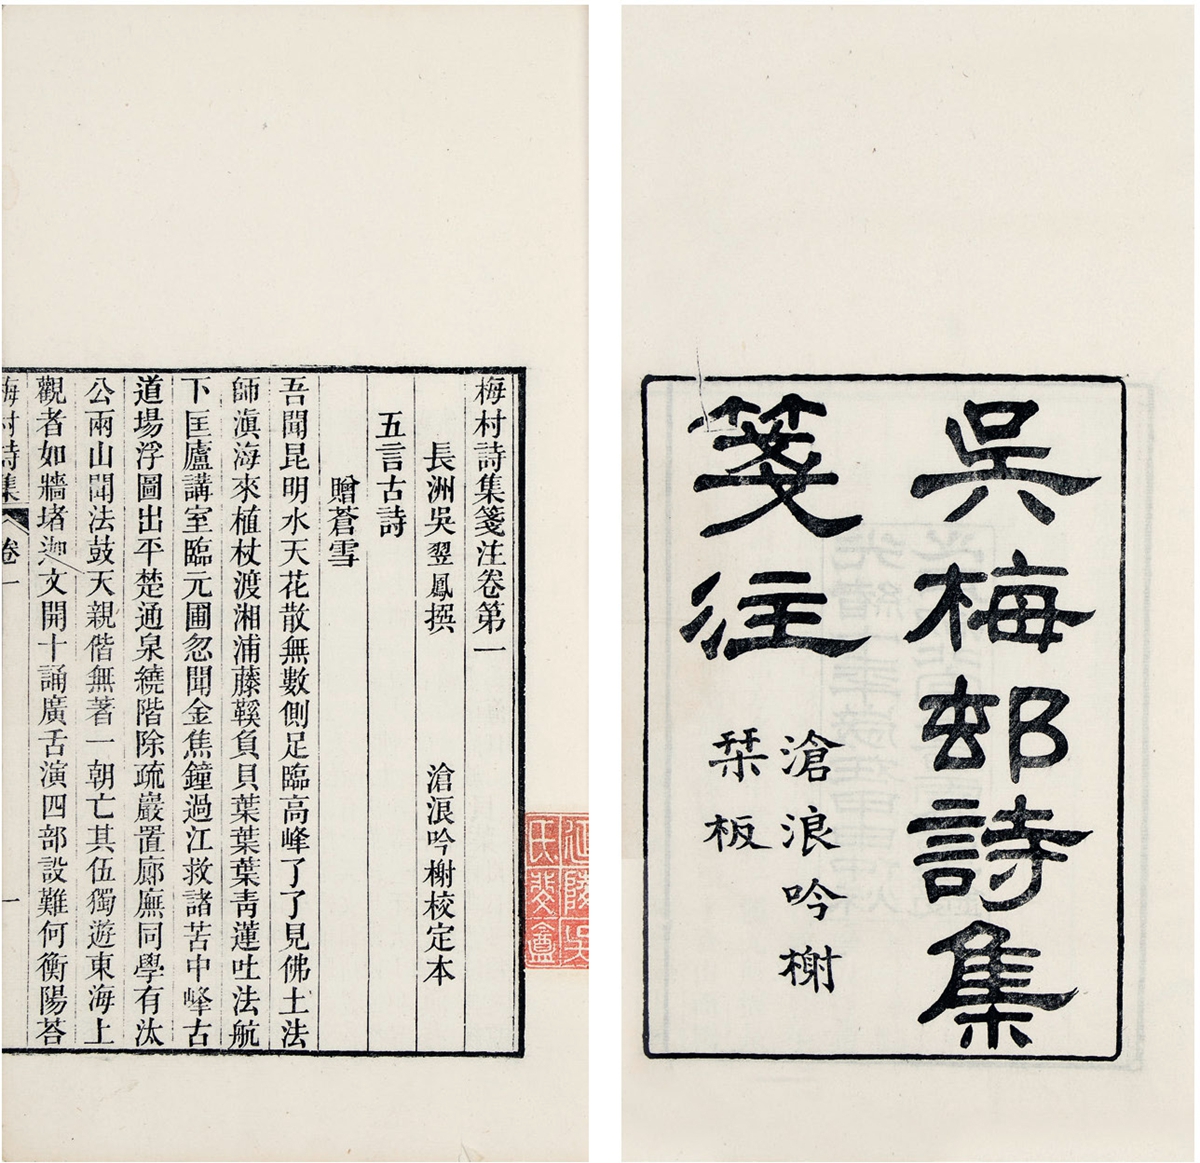 吳梅邨詩集
箋注
滄浪吟榭
栞板
梅村詩集箋注卷第一
長洲吳翌鳳撰 滄浪吟榭校定本
五言古詩
贈蒼雪
吾聞昆明水天花散無數側足臨高峰了了見佛土法
師滇海來植杖渡湘浦藤鞵負貝葉葉葉青蓮吐法航
下匡廬講室臨元圃忽聞金焦鐘過江救諸苦中峰古
道場浮圖出平楚通泉繞階除疏巖置廊廡同學有汰
公兩山聞法鼓天親偕無著一朝亡其伍獨遊東海上
觀者如牆堵迦文開十誦廣舌演四部設難何衡陽荅
梅村詩集 卷一 一